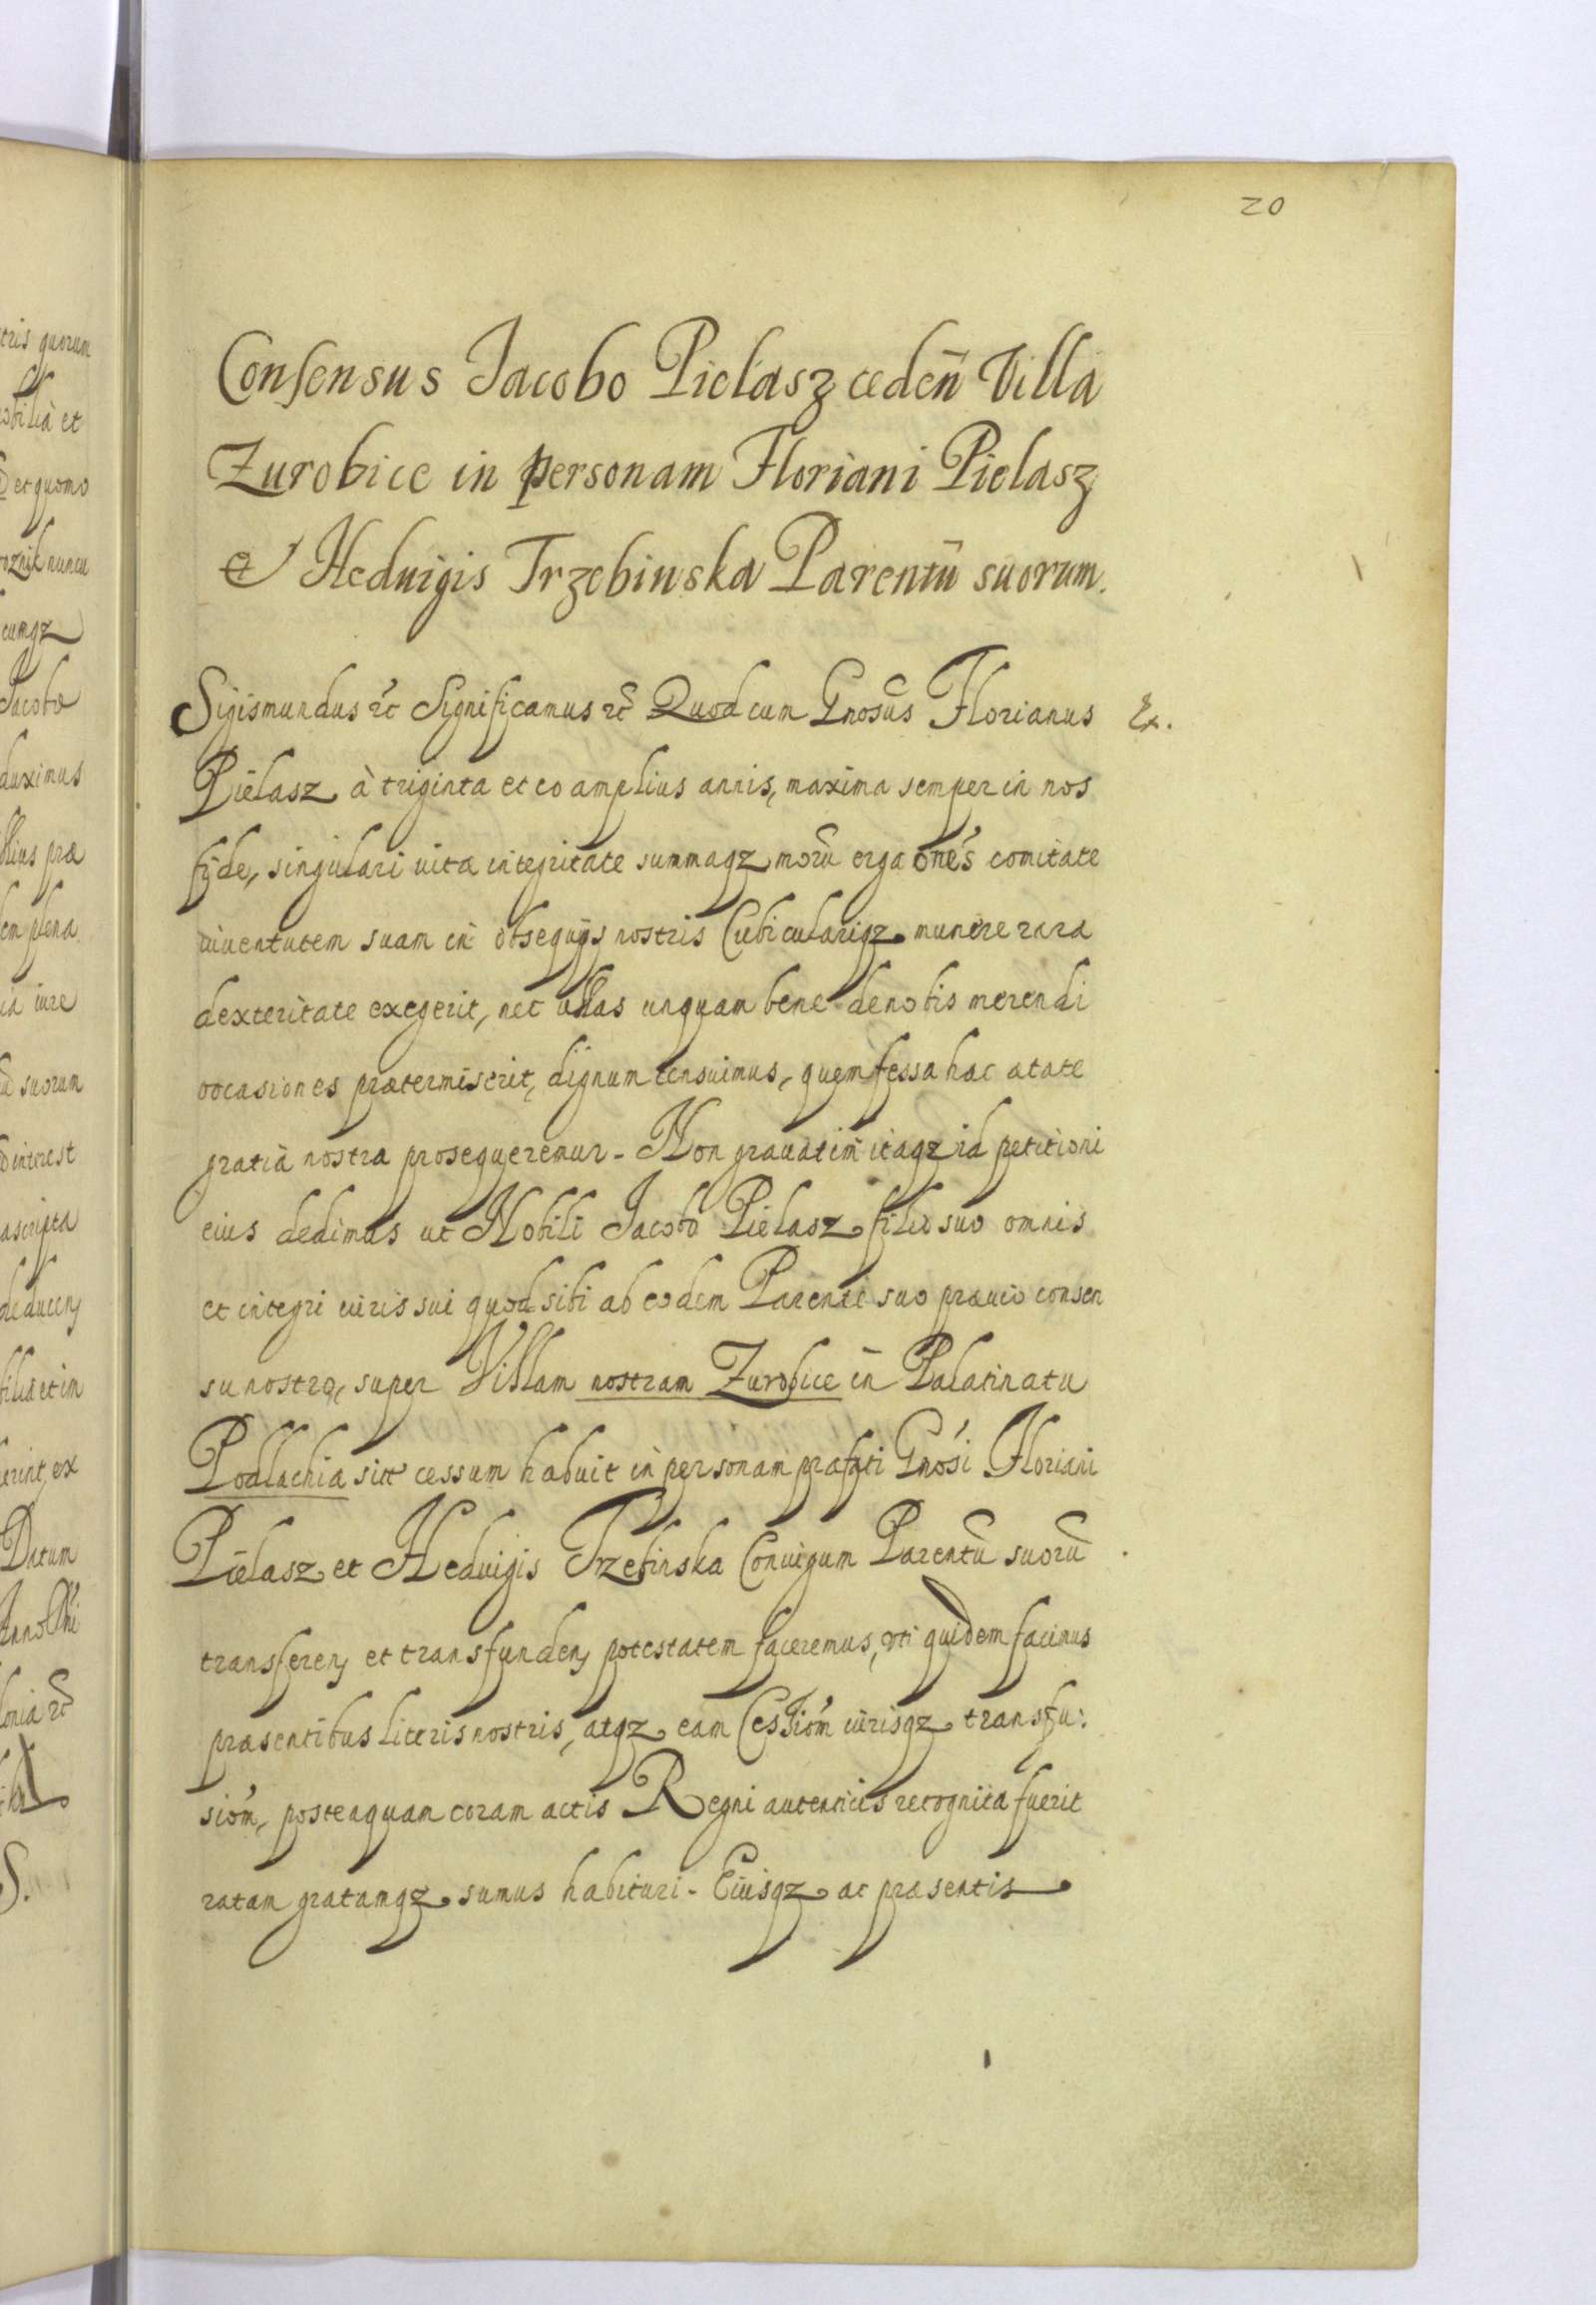 20
Consensus Jacobo Pielasz cedeñ Villa
Zurobice in personam Floriani Pielasz
et Heduigis Trzebinska Parentū suorum.
Sigismundus etc Significamus etc Quod cum Gnosus Florianus Ex.
Pielasz à triginta et eo amplius annis, maxima semper in nos
fide, singulari vita integritate summaqz morū erga onēs comitate
iuuentutem suam in obsequijs nostris Cubiculariqz munere rara
dexteritate exegerit, nec ullas unquam bene de nobis merendi
occasiones prætermiserit, dignum censuimus, quem fessa hac ætate
gratia nostra prosequeremur. Non grauatim itaqz id petitioni
eius dedimus ut Nobili Jacobo Pielasz filio suo omnis
et integri iuris sui quod sibi ab eodem Parente suo præuio consen
su nostro, super Villam nostram Zurobice in Palatinatu
Podlachia sitt cessum habuit in personam præfati Gnosi Floriani
Pielasz et Heduigis Trzebinska Coniugum Parentū suorū
transferen et transfunden potestatem faceremus, vti quidem facimus
præsentibus literis nostris, atqz eam Cessiom iurisqz transfu:
siom, posteaquam coram actis Regni autenticis recognita fuerit
ratam gratamqz sumus habituri. Eiusqz ac præsentis
tris quorum
obilia et
et quomo
oznik nuncu
cumqz
Jacobo
duximus
llius præ
em plena
ia iure
suorum
interest
ascripta
deducen
bilia et im
erint, ex
Datum
Anno Dni
lonia etc
S.